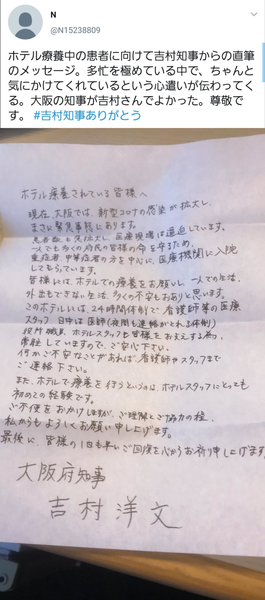 N
@N15238809
ホテル療養中の患者に向けて吉村知事からの直筆
のメッセージ。多忙を極めている中で、ちゃんと
気にかけてくれているという心遣いが伝わってく
る。大阪の知事が吉村さんでよかった。尊敬で
す。 #吉村知事ありがとう
ホテル療養されている皆様へ
現在、大阪では、新型コロナの感染が拡大し、
まさに緊急事態にあります。
も拡大し、医療現場は逼迫しています。
一人でも多くの府民の皆様の命を守るため、
重症者、中等症者の方を中心に、医療機関に入院
してもらっています。
皆様には、ホテルでの療養をお願いし、一人での生活、
外出もできない生活は、多くの不安もおありと思います。
このホテルには、24時間体制で、看護師等の医療
スタッフ、日中は医師(夜間も連絡がとれる体制)
役所職員、ホテルスタッフも皆様をお支えする為、
常駐していますので、ご安心下さい。
何かご不安なことがあれば、看護師やスタッフまで
ご連絡下さい。
また、ホテルで療養を行うというのは、ホテルスタッフにとっても
初めての経験です。
ご不便をおかけしますが、ご理解とご協力の程、
私からもよろしくお願い申し上げます。
最後に、皆様の1日も早いご回復を心からお祈り申し上げます。
大阪府知事
吉村洋文